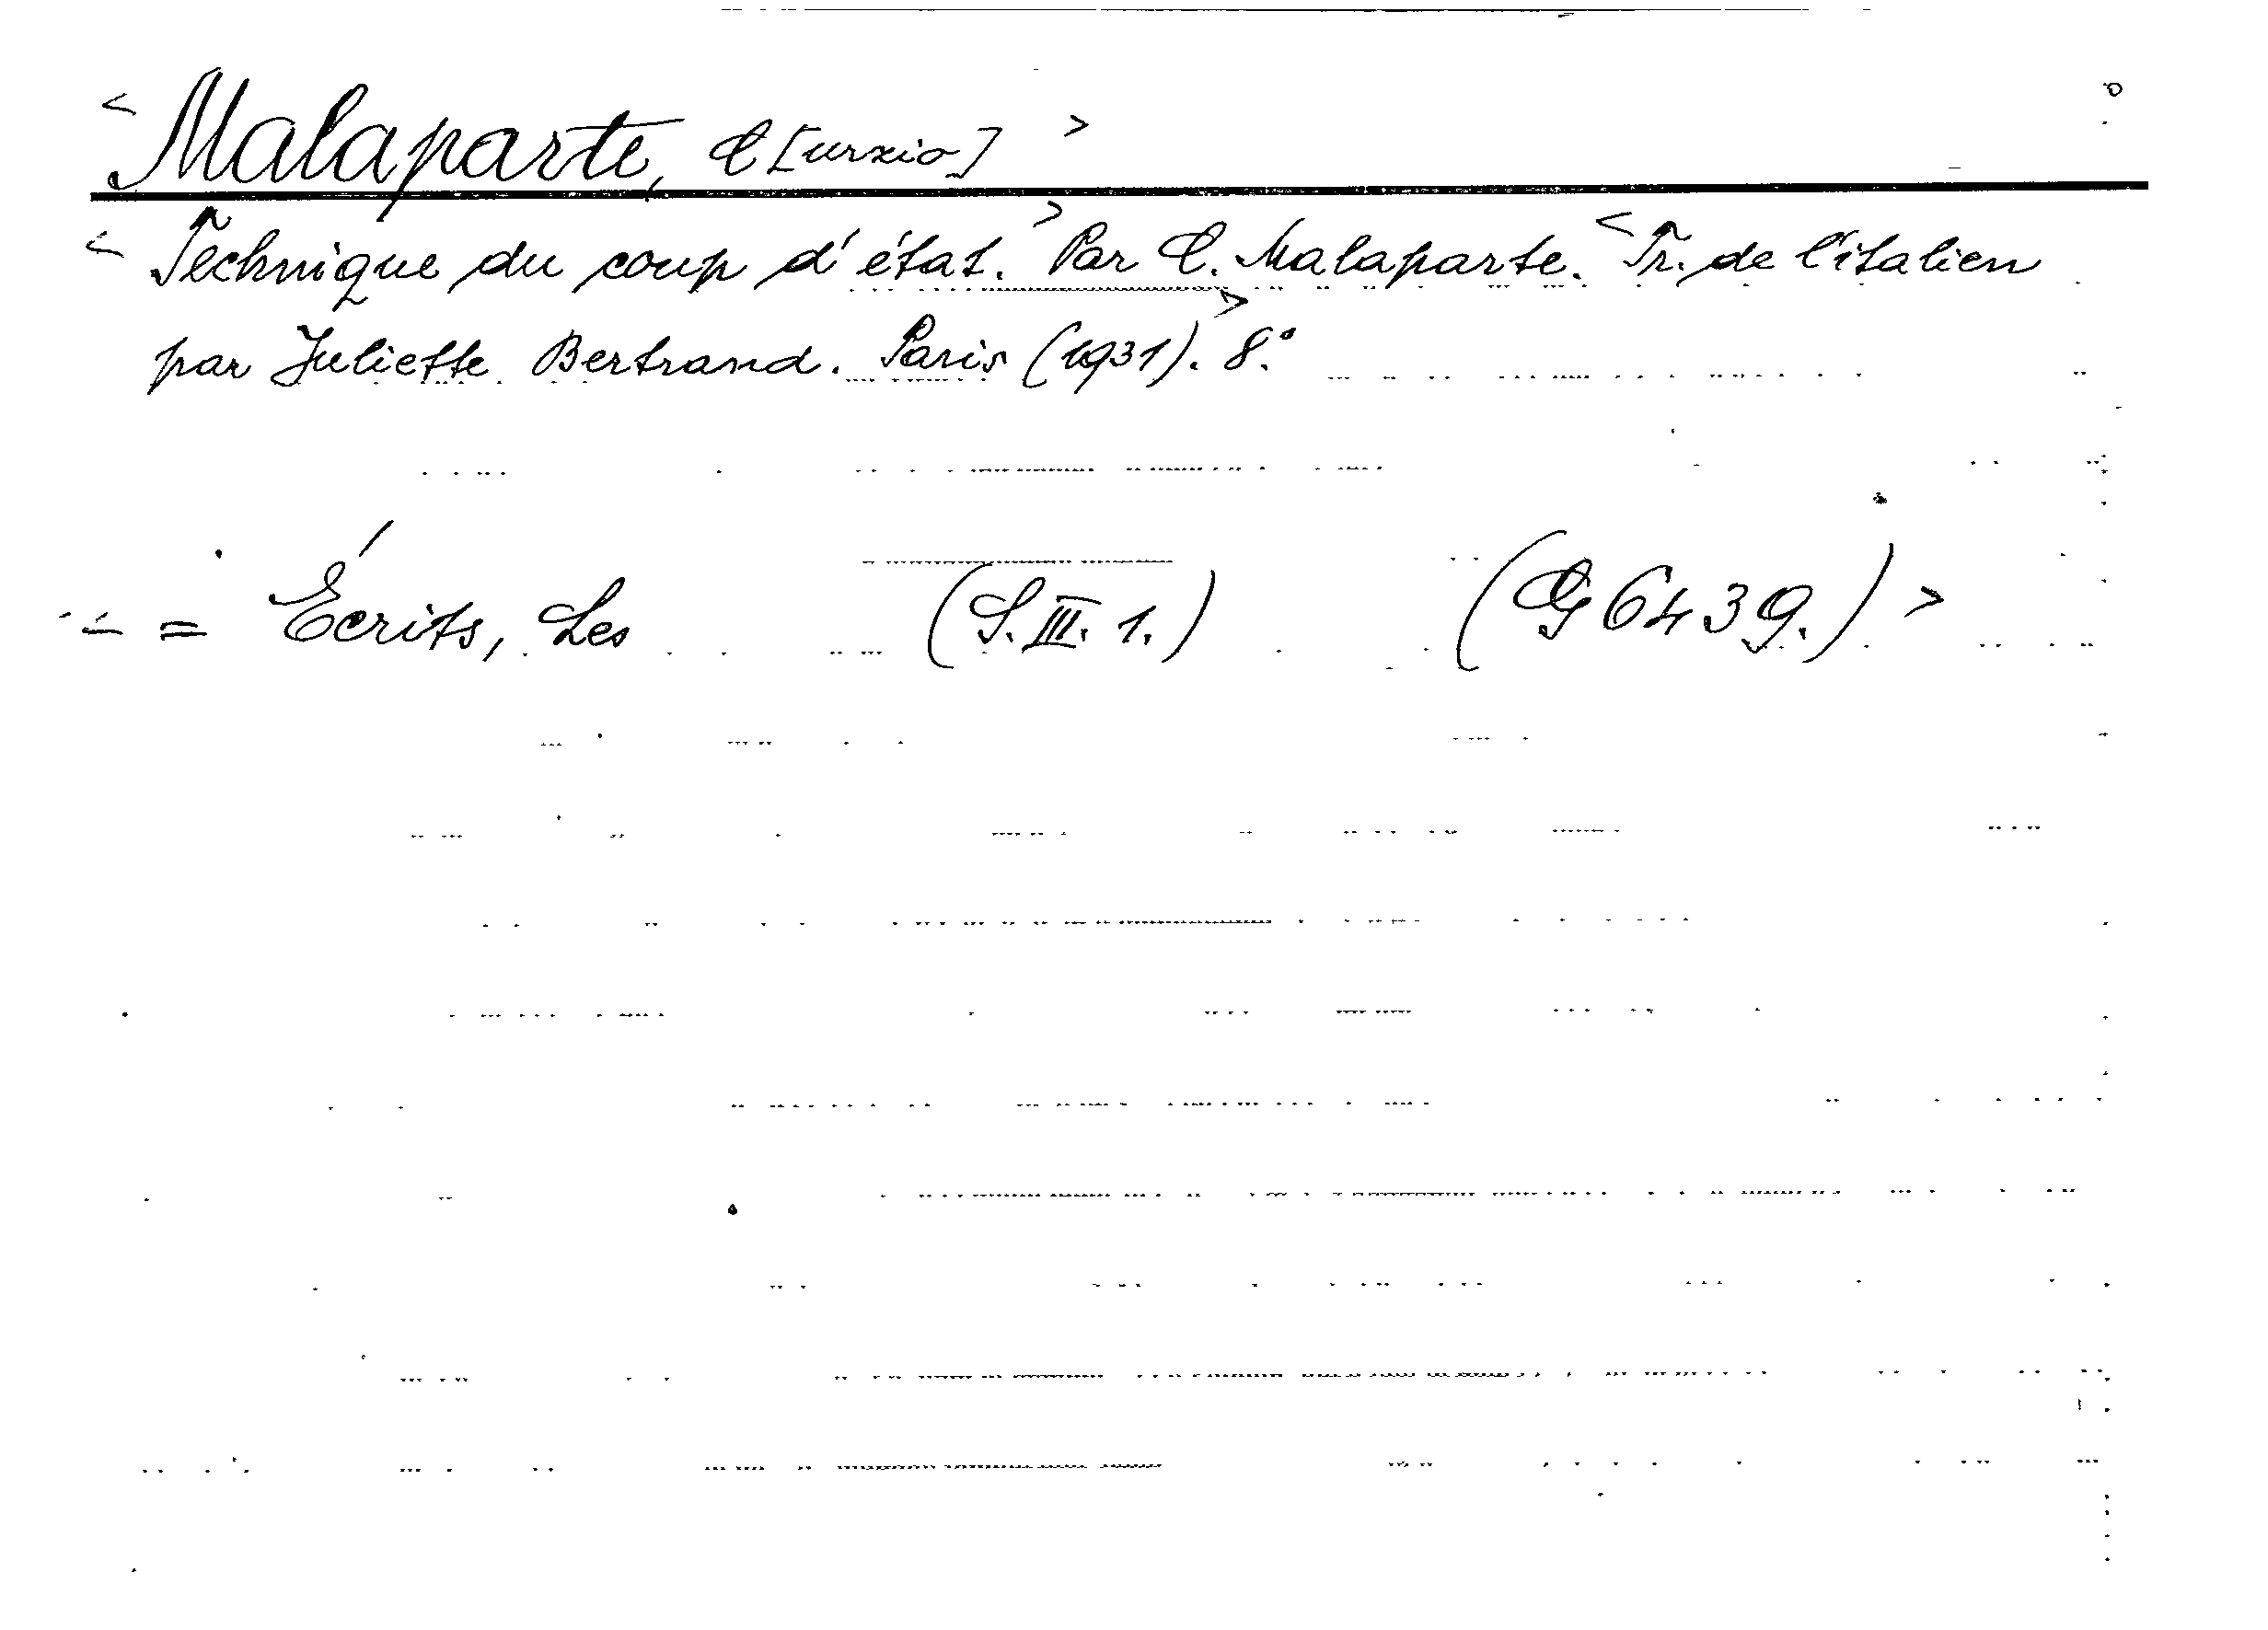 < Malaparte, C[urzio] >
< Technique du coup d'état. > Par C. Malaparte. < Tr. de l'italien
par Juliette Bertrand. Paris (1931). > 8°.
= Écrits, Les (S. III. 1.) (G 6439.) >